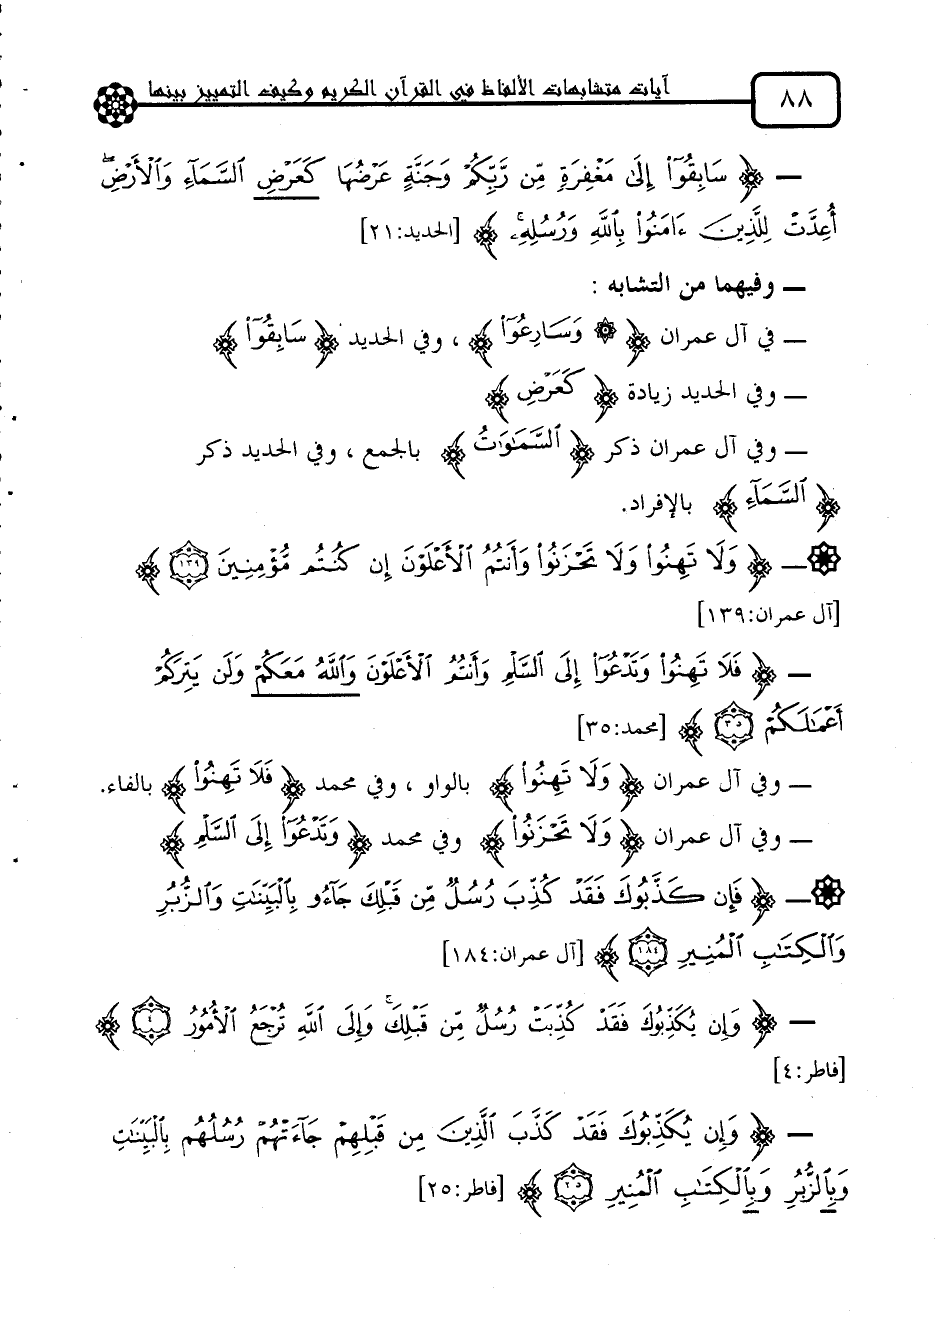 ٨٨ آيات متشابهات الألفاظ في القرآن الكريم وكيف التمييز بينها
— ﴿ سَابِقُوٓا۟ إِلَىٰ مَغْفِرَةٍ مِّن رَّبِّكُمْ وَجَنَّةٍ عَرْضُهَا كَعَرْضِ ٱلسَّمَآءِ وَٱلْأَرْضِ
أُعِدَّتْ لِلَّذِينَ ءَامَنُوا۟ بِٱللَّهِ وَرُسُلِهِۦ ۚ ﴾ [الحديد:٢١]
— وفيهما من التشابه :
— في آل عمران ﴿ ۞ وَسَارِعُوٓا۟ ﴾ ، وفي الحديد ﴿ سَابِقُوٓا۟ ﴾
— وفي الحديد زيادة ﴿ كَعَرْضِ ﴾
— وفي آل عمران ذكر ﴿ ٱلسَّمَـٰوَٰتُ ﴾ بالجمع ، وفي الحديد ذكر
﴿ ٱلسَّمَآءِ ﴾ بالإفراد.
۞— ﴿ وَلَا تَهِنُوا۟ وَلَا تَحْزَنُوا۟ وَأَنتُمُ ٱلْأَعْلَوْنَ إِن كُنتُم مُّؤْمِنِينَ ١٣٩ ﴾
[آل عمران:١٣٩]
— ﴿ فَلَا تَهِنُوا۟ وَتَدْعُوٓا۟ إِلَى ٱلسَّلْمِ وَأَنتُمُ ٱلْأَعْلَوْنَ وَٱللَّهُ مَعَكُمْ وَلَن يَتِرَكُمْ
أَعْمَـٰلَكُمْ ٣٥ ﴾ [محمد:٣٥]
— وفي آل عمران ﴿ وَلَا تَهِنُوا۟ ﴾ بالواو ، وفي محمد ﴿ فَلَا تَهِنُوا۟ ﴾ بالفاء.
— وفي آل عمران ﴿ وَلَا تَحْزَنُوا۟ ﴾ وفي محمد ﴿ وَتَدْعُوٓا۟ إِلَى ٱلسَّلْمِ ﴾
۞— ﴿ فَإِن كَذَّبُوكَ فَقَدْ كُذِّبَ رُسُلٌ مِّن قَبْلِكَ جَآءُو بِٱلْبَيِّنَـٰتِ وَٱلزُّبُرِ
وَٱلْكِتَـٰبِ ٱلْمُنِيرِ ١٨٤ ﴾ [آل عمران:١٨٤]
— ﴿ وَإِن يُكَذِّبُوكَ فَقَدْ كُذِّبَتْ رُسُلٌ مِّن قَبْلِكَ ۚ وَإِلَى ٱللَّهِ تُرْجَعُ ٱلْأُمُورُ ٤ ﴾
[فاطر:٤]
— ﴿ وَإِن يُكَذِّبُوكَ فَقَدْ كَذَّبَ ٱلَّذِينَ مِن قَبْلِهِمْ جَآءَتْهُمْ رُسُلُهُم بِٱلْبَيِّنَـٰتِ
وَبِٱلزُّبُرِ وَبِٱلْكِتَـٰبِ ٱلْمُنِيرِ ٢٥ ﴾ [فاطر:٢٥]